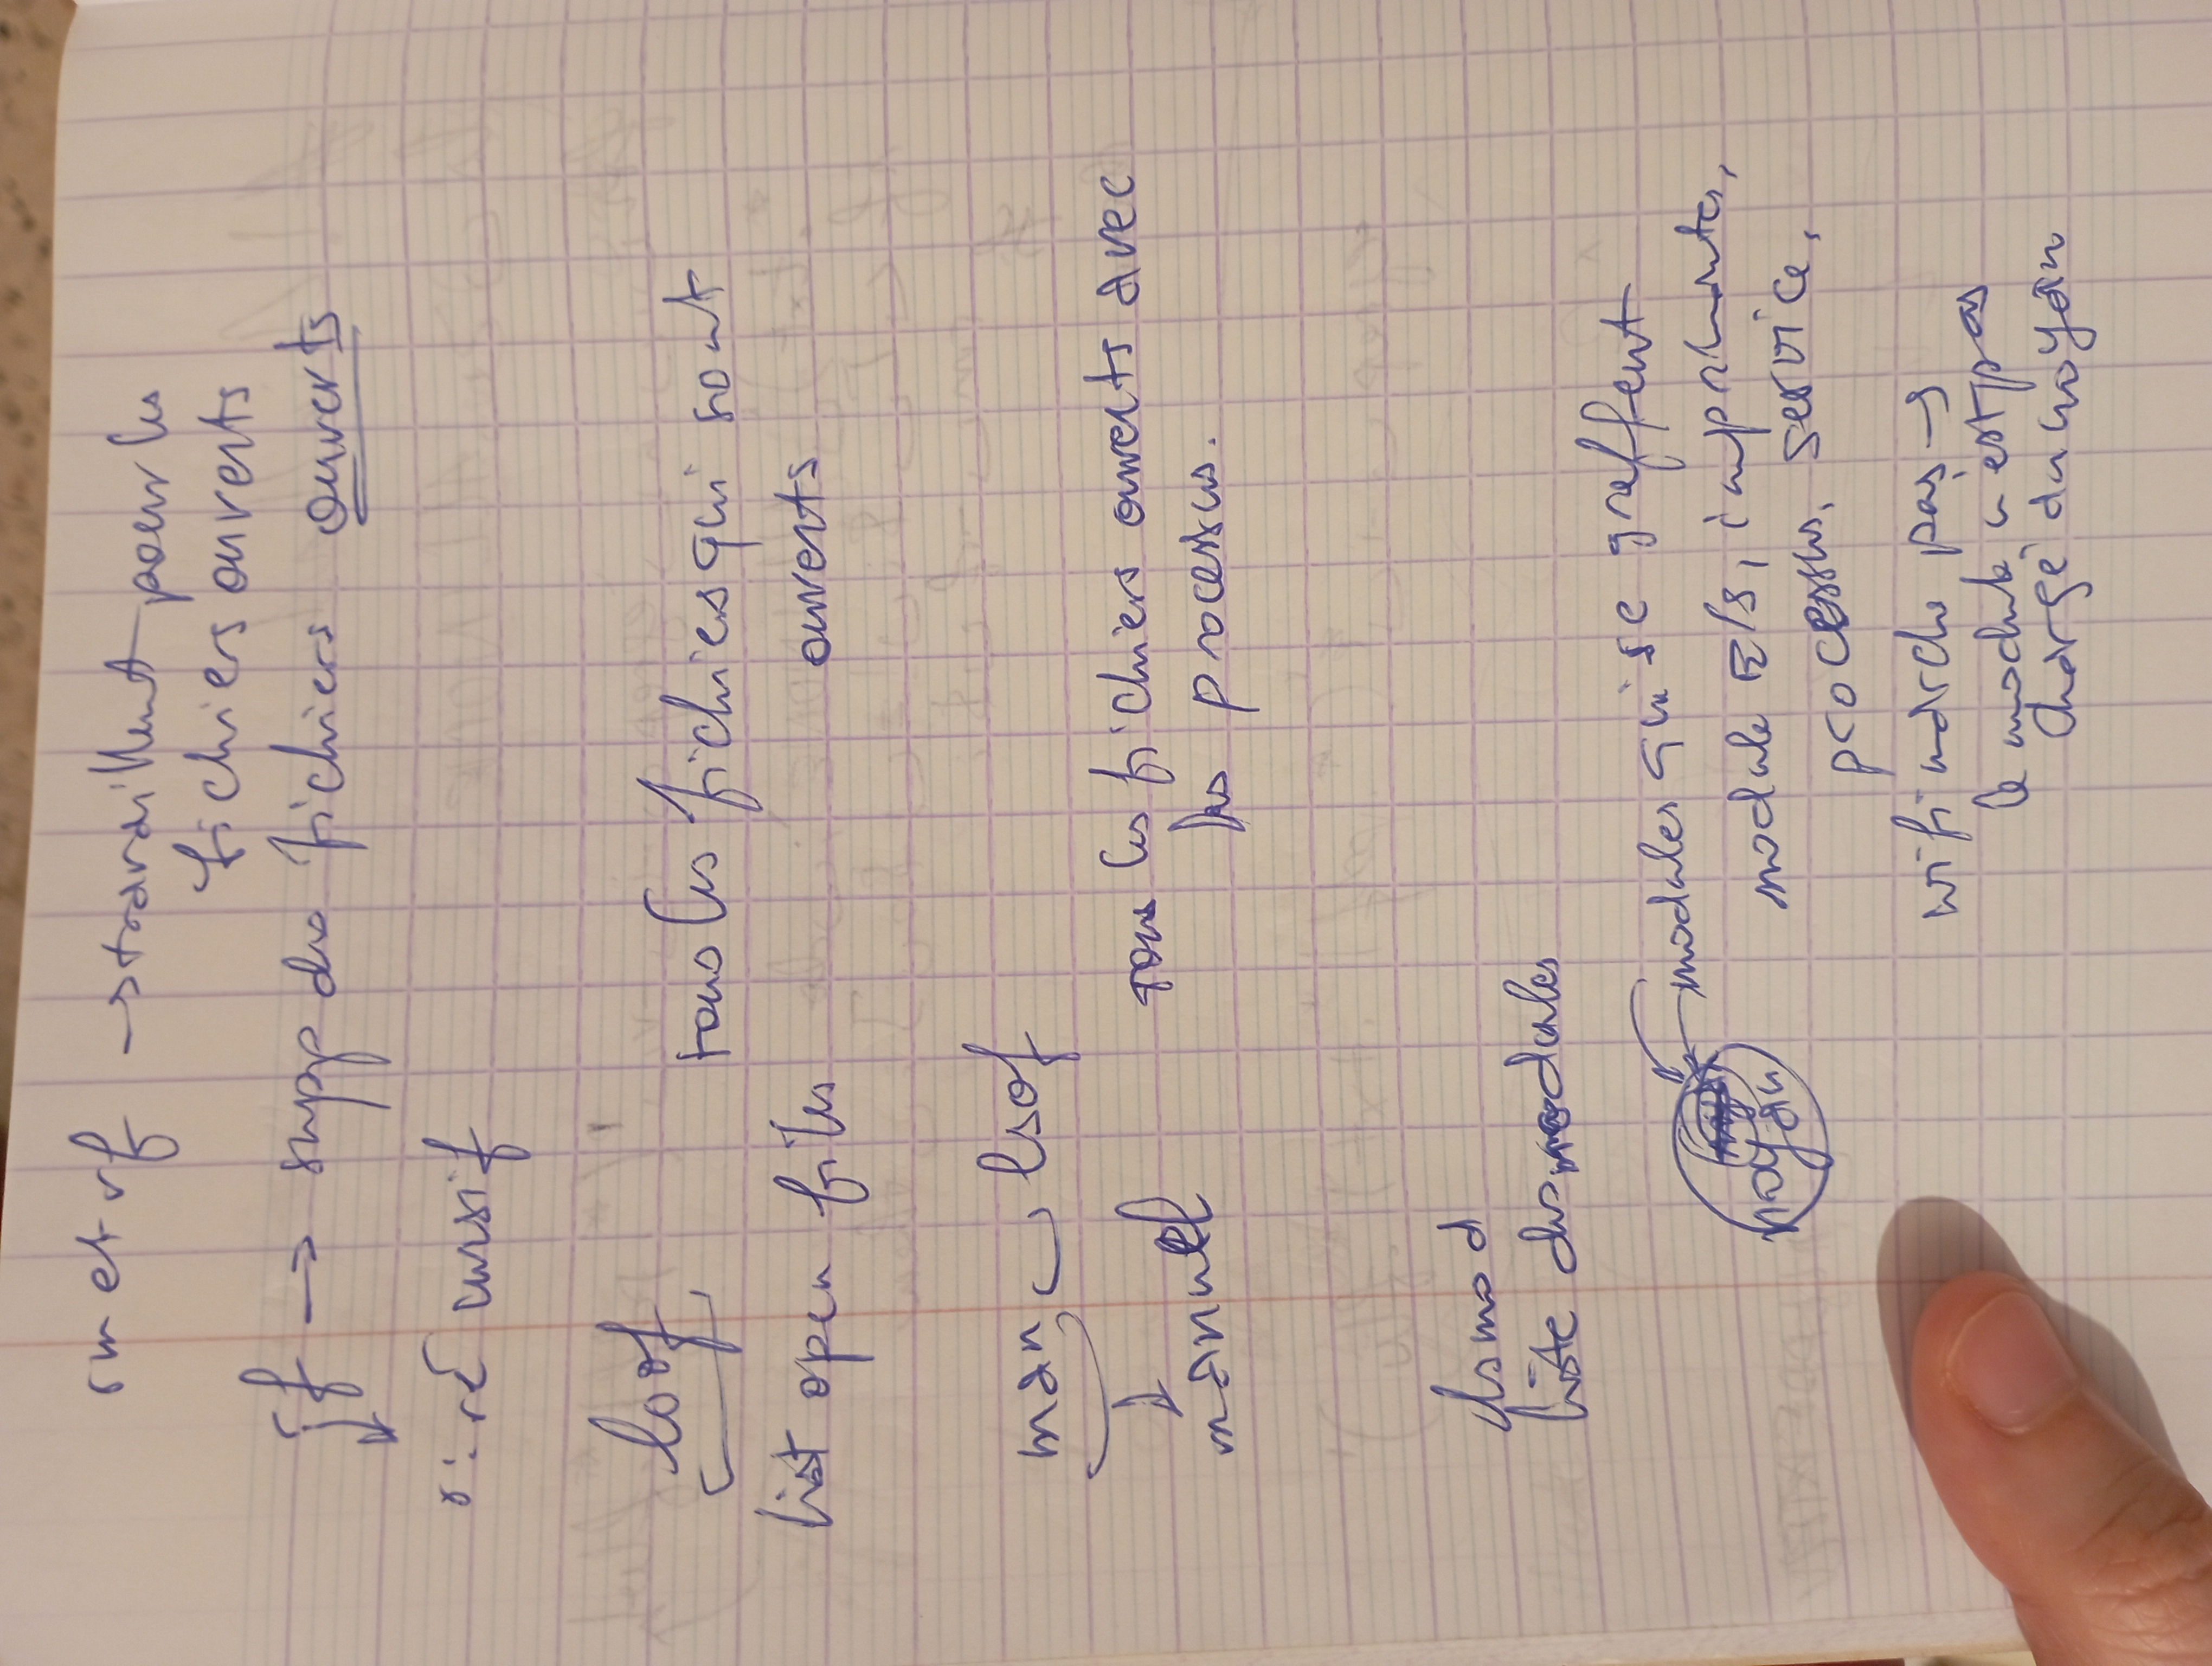 rm et rf → travaillent pour les
fichiers ouverts
rf → supp des fichiers ouverts
r : récursif
lsof
tous les fichiers qui sont
list open files ouverts
man lsof
tous les fichiers ouverts avec
manuel les processus.
lsmod
liste des modules
modules qui se greffent
noyau
module E/S, imprimantes,
processus, service,
wifi marche pas →
le module n'est pas
chargé au noyau